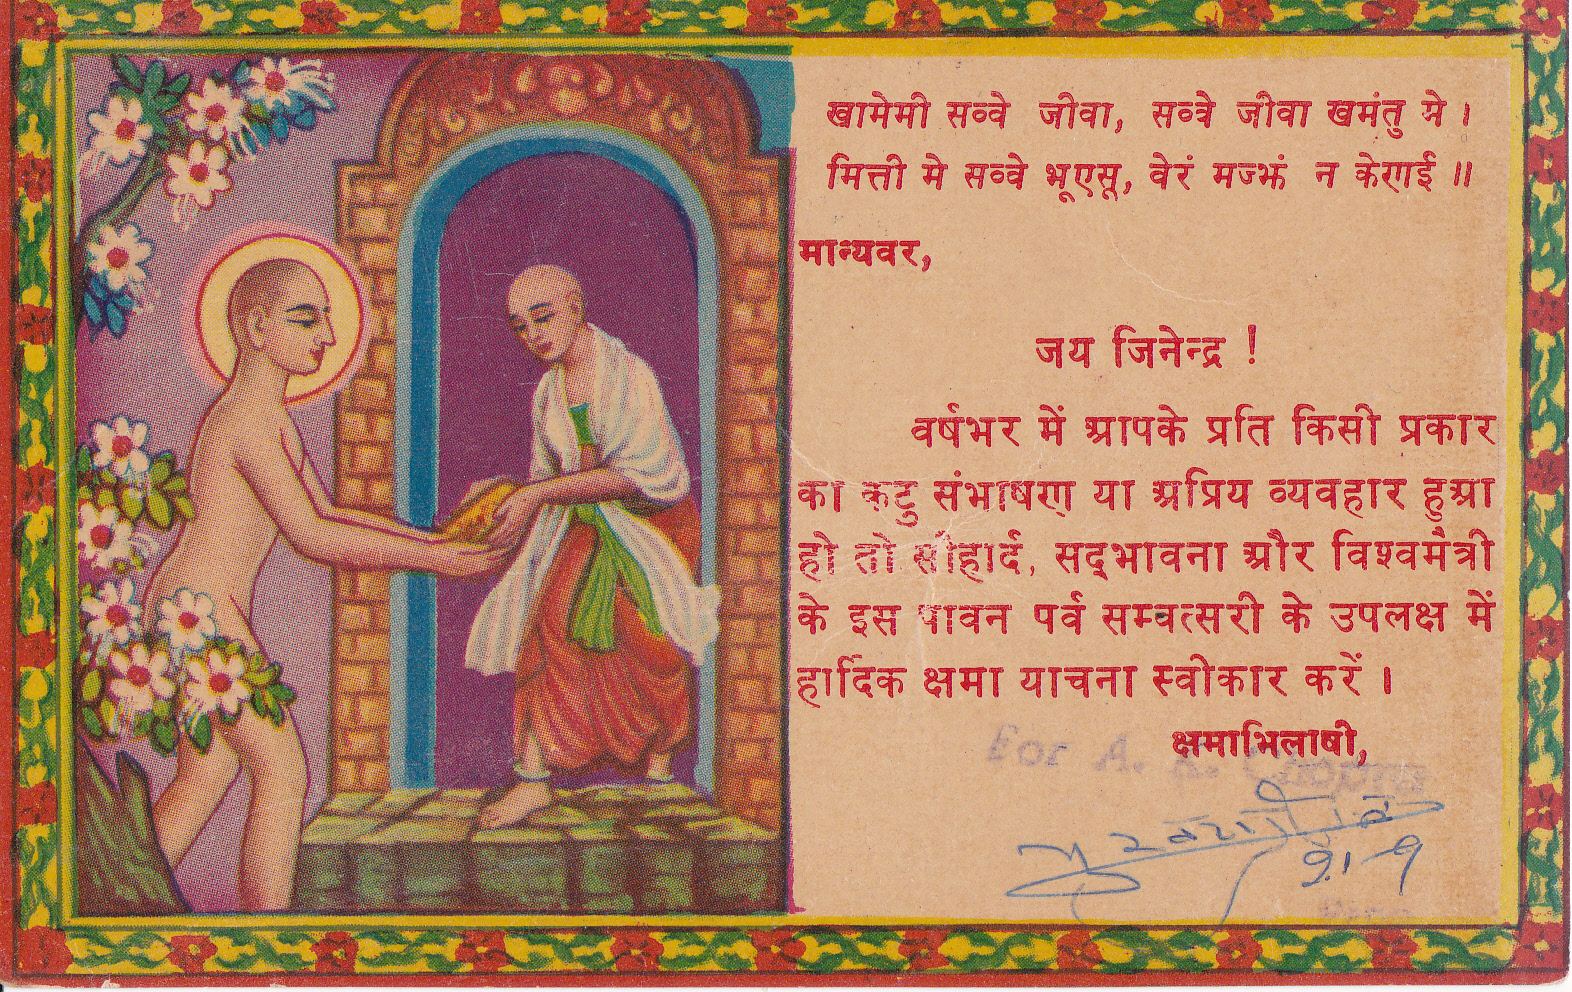 खामेमी सव्वे जीवा, सव्वे जीवा खमंतु मे ।
मित्ती मे सव्वे भूएसू, वेरं मज्झं न केणई ॥
मान्यवर,
जय जिनेन्द्र !
वर्षभर में आपके प्रति किसी प्रकार
का कटु संभाषण या अप्रिय व्यवहार हुआ
हो तो सौहार्द, सद्‌भावना और विश्वमैत्री
के इस पावन पर्व सम्वत्सरी के उपलक्ष में
हार्दिक क्षमा याचना स्वीकार करें ।
क्षमाभिलाषी,
For A. K.